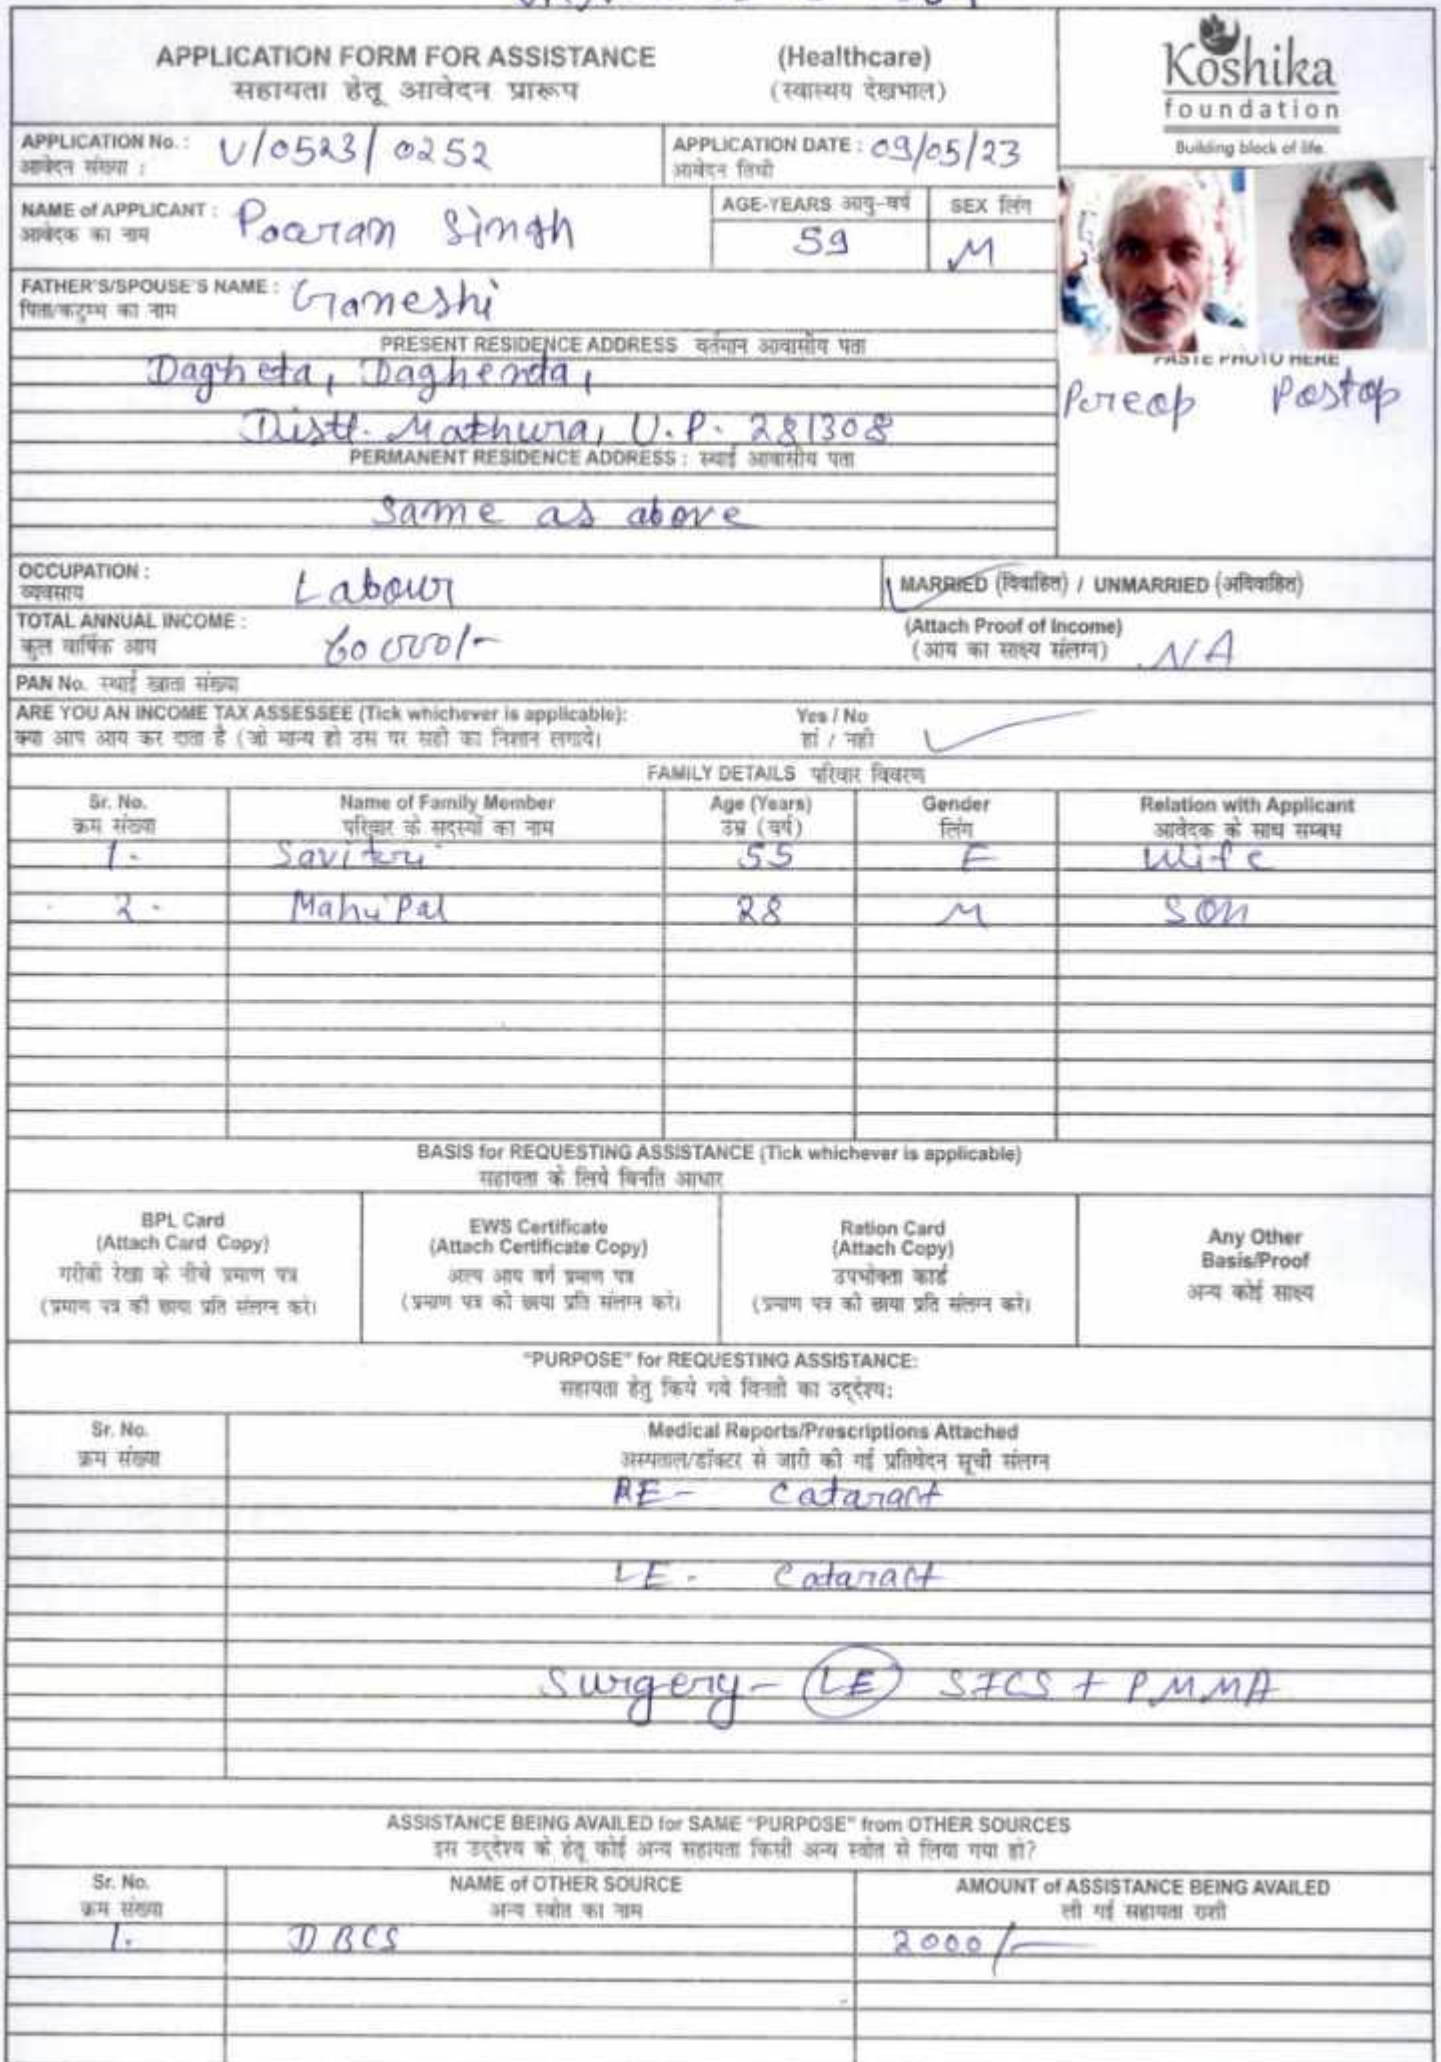 APPLICATION FORM FOR ASSISTANCE (Healthcare)
सहायता हेतू आवेदन प्रारूप (स्वास्थय देखभाल)
Koshika
foundation
Building block of life.
APPLICATION No. : U/0523/0252
आवेदन संख्या :
APPLICATION DATE : 09/05/23
आवेदन तिथी
NAME of APPLICANT : Pooran Singh
आवेदक का नाम
AGE-YEARS आयु-वर्ष
59
SEX लिंग
M
FATHER'S/SPOUSE'S NAME : Ganeshi
पिता/कटुम्भ का नाम
PRESENT RESIDENCE ADDRESS वर्तमान आवासीय पता
Dagheta, Daghenta,
Distt. Mathura, U.P. 281308
PASTE PHOTO HERE
Preop Postop
PERMANENT RESIDENCE ADDRESS : स्थाई आवासीय पता
Same as above
OCCUPATION : Labour
व्यवसाय
MARRIED (विवाहित) / UNMARRIED (अविवाहित)
TOTAL ANNUAL INCOME : 60000/-
कुल वार्षिक आय
(Attach Proof of Income)
(आय का साक्ष्य संलग्न) NA
PAN No. स्थाई खाता संख्या
ARE YOU AN INCOME TAX ASSESSEE (Tick whichever is applicable): Yes / No
क्या आप आय कर दाता है (जो मान्य हो उस पर सही का निशान लगाये। हां / नही
FAMILY DETAILS परिवार विवरण
Sr. No. Name of Family Member Age (Years) Gender Relation with Applicant
क्रम संख्या परिवार के सदस्यों का नाम उम्र (वर्ष) लिंग आवेदक के साथ सम्बध
1. Savitri 55 F Wife
2. Mahipal 28 M Son
BASIS for REQUESTING ASSISTANCE (Tick whichever is applicable)
सहायता के लिये विनति आधार
BPL Card
(Attach Card Copy)
गरीबी रेखा के नीचे प्रमाण पत्र
(प्रमाण पत्र की छाया प्रति संलग्न करे।
EWS Certificate
(Attach Certificate Copy)
अल्प आय वर्ग प्रमाण पत्र
(प्रमाण पत्र की छाया प्रति संलग्न करे।
Ration Card
(Attach Copy)
उपभोक्ता कार्ड
(प्रमाण पत्र की छाया प्रति संलग्न करे।
Any Other
Basis/Proof
अन्य कोई साक्ष्य
"PURPOSE" for REQUESTING ASSISTANCE:
सहायता हेतु किये गये विनती का उद्देश्य:
Sr. No. Medical Reports/Prescriptions Attached
क्रम संख्या अस्पताल/डॉक्टर से जारी की गई प्रतिवेदन सूची संलग्न
RE - Cataract
LE - Cataract
Surgery - LE SICS + PMMA
ASSISTANCE BEING AVAILED for SAME "PURPOSE" from OTHER SOURCES
इस उद्देश्य के हेतू कोई अन्य सहायता किसी अन्य स्त्रोत से लिया गया हो?
Sr. No. NAME of OTHER SOURCE AMOUNT of ASSISTANCE BEING AVAILED
क्रम संख्या अन्य स्त्रोत का नाम ली गई सहायता राशी
1. DBCS 2000/-